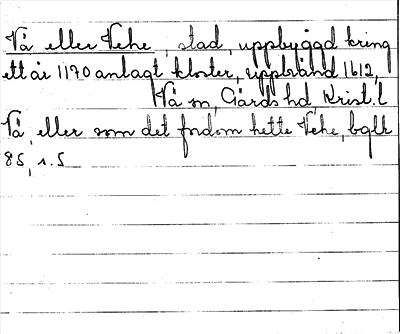 Vä eller Vehe, stad, uppbyggd kring
ett år 1170 anlagt kloster, uppbränd 1612,
Vä sn, Gärds hd, Krist. l
Vä, eller som det fordom hette Vehe, bqlk
85, s. 5